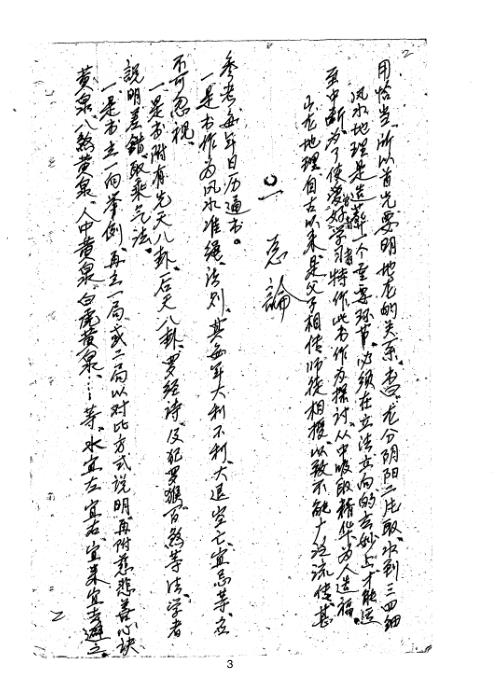 黄泉、八煞黄泉、人中黄泉、白虎黄泉、…等、水宜左宜右、宜来宜去避之
一是书立一向举例、再立一局或二局以对比方式说明、再附慈悲善心诀
说明差错取乘气法。
一是书附有先天八卦、后天八卦、罗经诗、及犯罗猴百煞等法、学者
不可忽视。
一是书作为风水准绳法则、其每年大利不利、大退空亡、宜忌等、应
参考每年日历通书。
一 总論
山龙地理自古以来是父子相传师徒相授、以致不能广泛流传甚
至中断、为了使爱好学习者特作此书作为探讨、从中吸取精华、为人造福。
风水地理是造葬一个重要环节、必须在立法立向的玄妙上、才能运
用恰当、所以首先要明地龙的关系、书曰、龙分阴阳二片取、水到三四细
3